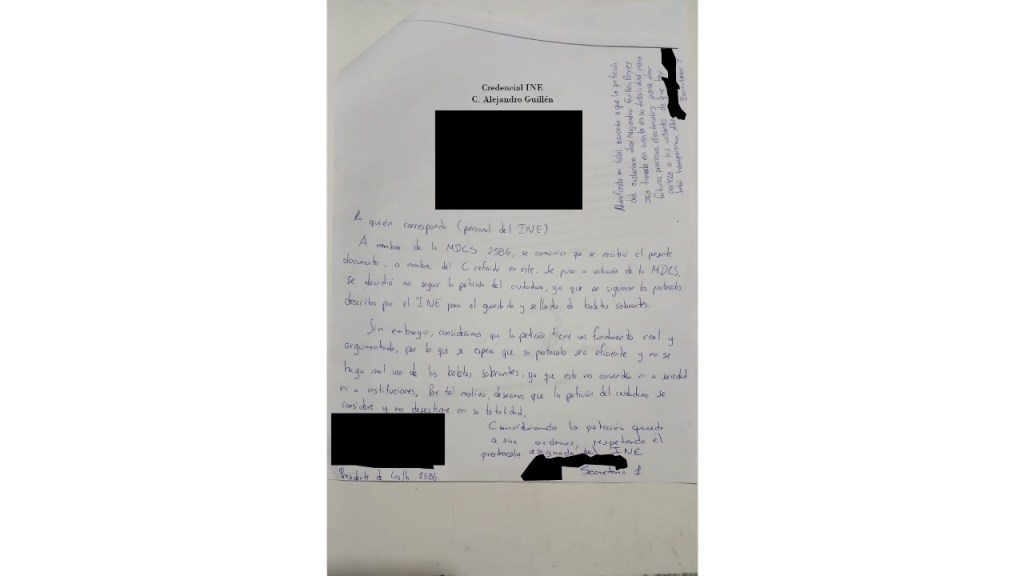 Credencial INE
C. Alejandro Guillén
A quién corresponda (personal del INE)
A nombre de la MDCS 2586, se comunica que se recibió el presente
documento, a nombre del C referido en este. Se puso a votación de la MDCS,
se decidió no seguir la petición del ciudadano, ya que se siguieron los protocolos
descritos por el INE para el guardado y sellado de boletas sobrantes.
Sin embargo, consideramos que la petición tiene un fundamento real y
argumentado, por lo que se espera que su protocolo sea eficiente y no se
haga mal uso de las boletas sobrantes, ya que esto no convendría ni a sociedad
ni a instituciones. Por tal motivo, deseamos que la petición del ciudadano se
considere y no desestime en su totalidad.
Presidente de Casilla 2586
Considerando la petición quedo
a sus ordenes, respetando el
protocolo asignado del INE
Secretario 1
Manifiesto mi total acuerdo a que la petición
del ciudadano José Alejandro Guillén Reyes
sea tomada en cuenta en su totalidad para
futuros procesos electorales para dar
certeza a los votantes de que hay
total transparencia